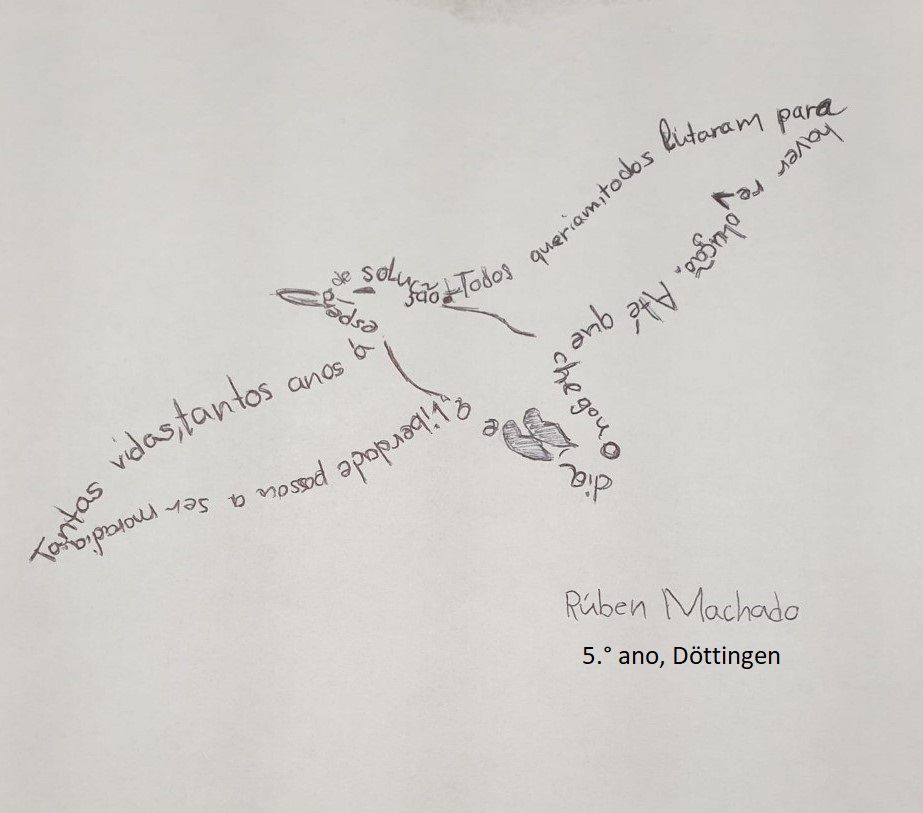 Tantas vidas,tantos anos à
espera
de solução!
Todos queriam,todos lutaram para
haver revolução. Até que
chegou o
dia,
e a liberdade passou a ser moradia.
Rúben Machado
5.° ano, Döttingen